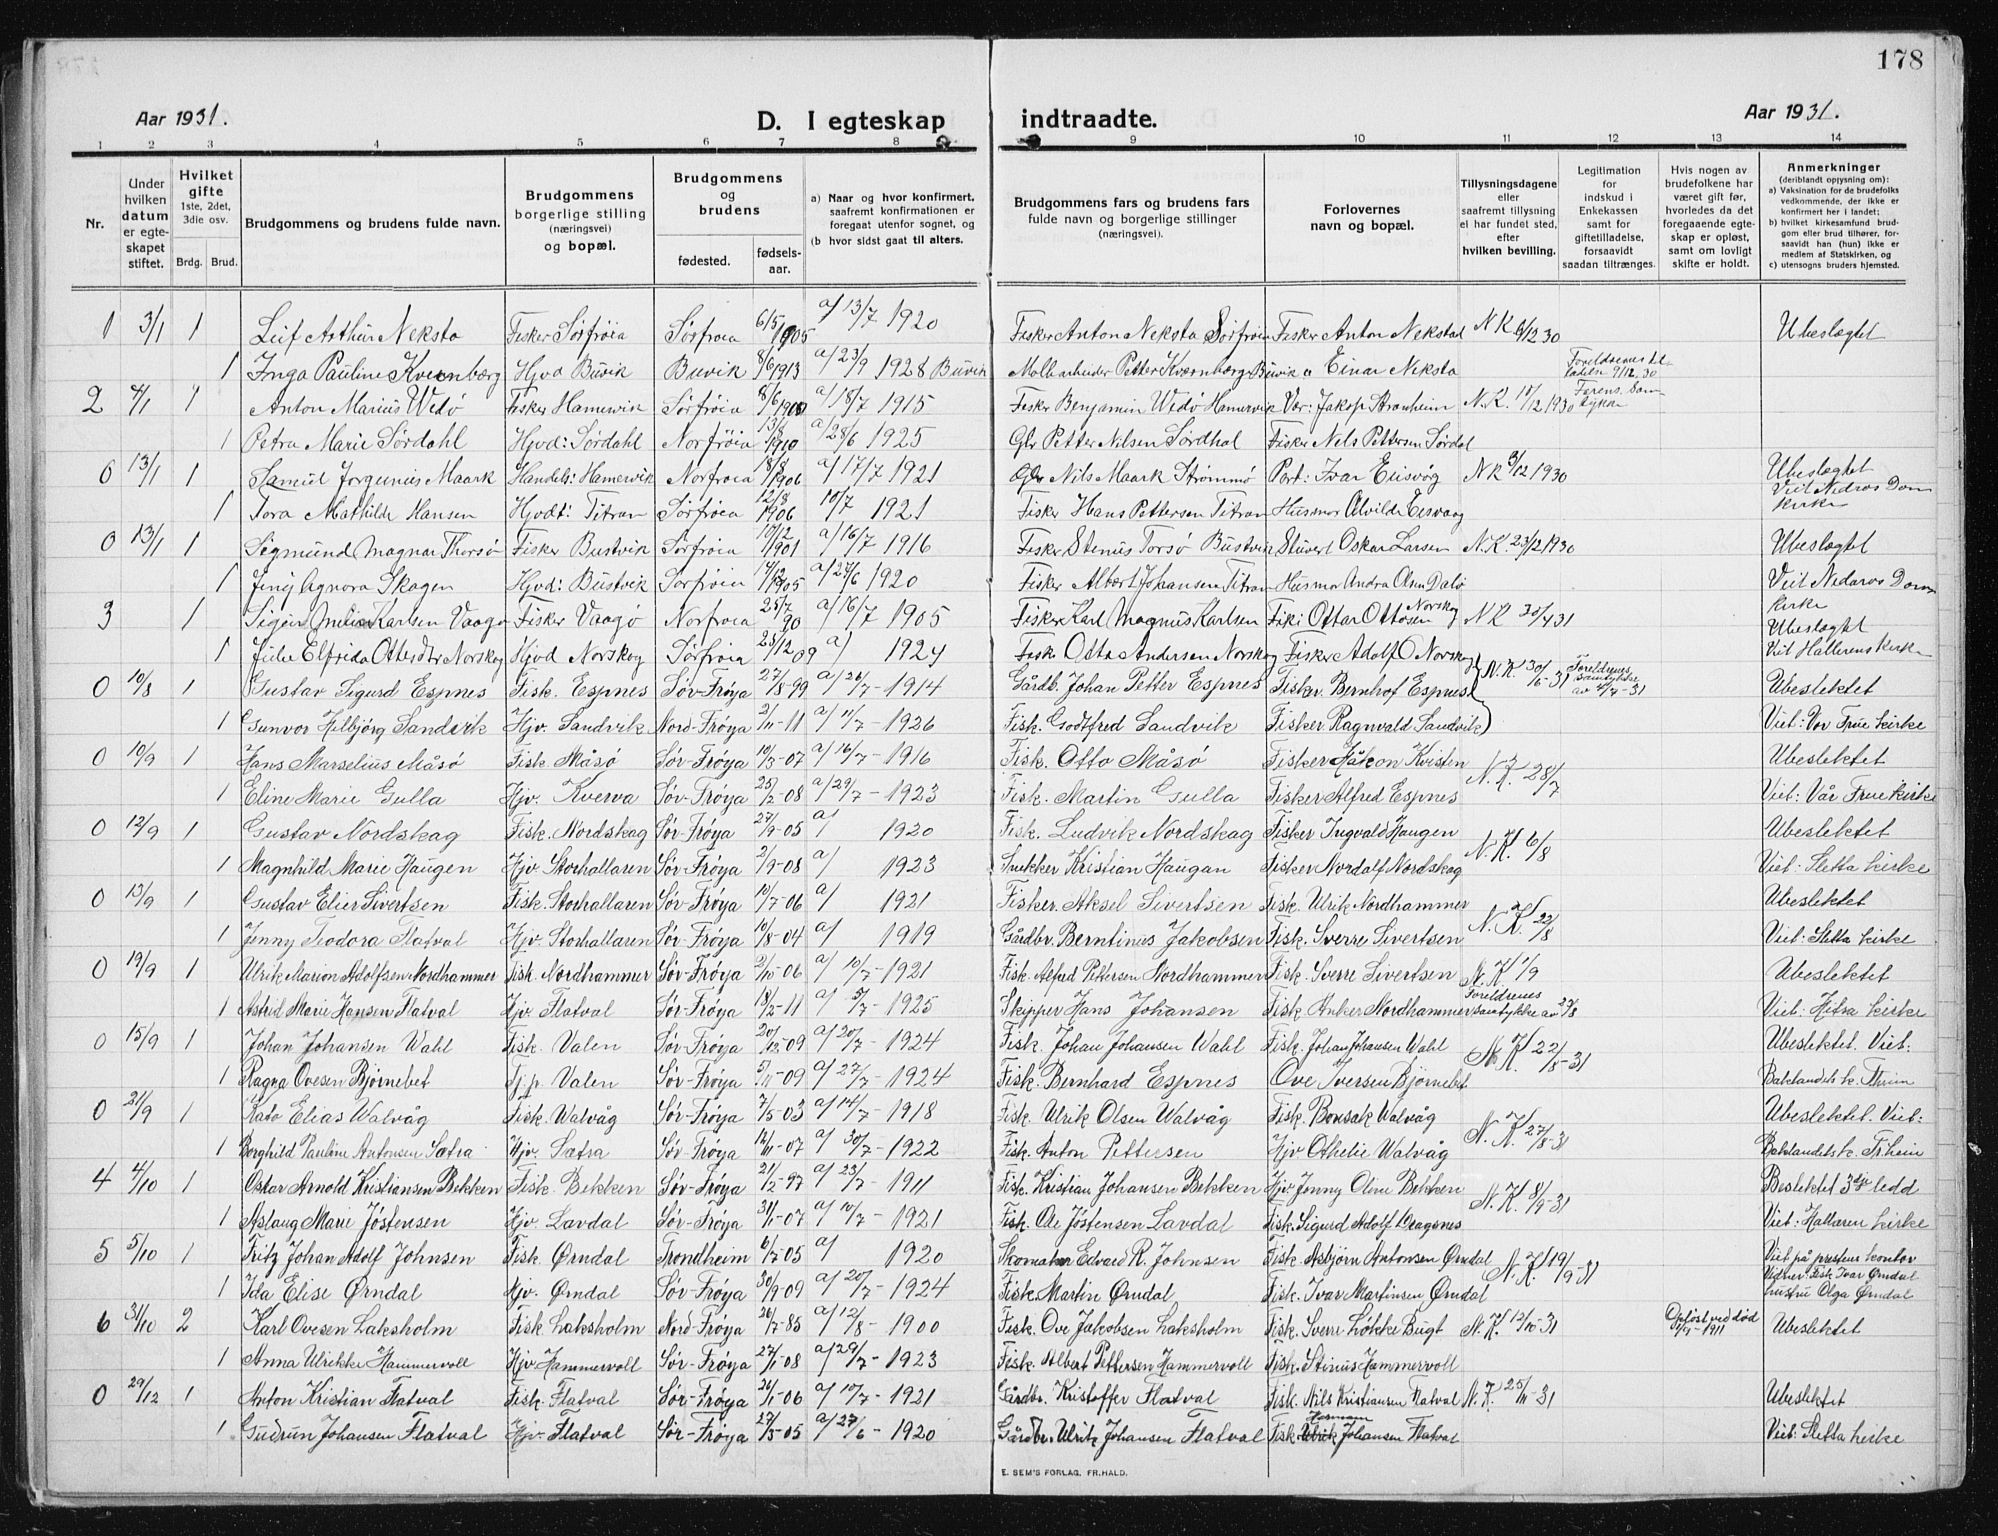 178
Aar 1931.
D. I egteskap indtraadte.
Aar 1931.
1 2 3 4 5 6 7 8 9 10 11 12 13 14
Nr.
Under hvilken datum er egteskapet stiftet.
Hvilket gifte 1ste, 2det, 3die osv. Brdg. Brud.
Brudgommens og brudens fulde navn.
Brudgommens borgerlige stilling (næringsvei) og bopæl.
Brudgommens og brudens
fødested. fødselsaar.
a) Naar og hvor konfirmert, saafremt konfirmationen er foregaat utenfor sognet, og (b hvor sidst gaat til alters.
Brudgommens fars og brudens fars fulde navn og borgerlige stillinger (næringsvei).
Forlovernes navn og bopæl.
Tillysningsdagene eller saafremt tillysning ei har fundet sted, efter hvilken bevilling.
Legitimation for indskud i Enkekassen samt for giftetilladelse, forsaavidt saadan tiltrænges.
Hvis nogen av brudefolkene har været gift før, hvorledes da det foregaaende egteskap er opløst, samt om lovligt skifte er holdt.
Anmerkninger (deriblandt oplysning om): a) Vaksination for de brudefolks vedkommende, der ikke er konfirmert her i landet; b) hvilket kirkesamfund brudgom eller brud tilhører, forsaavidt han (hun) ikke er medlem af Statskirken, og c) utensogns bruders hjemsted.
1 3/1 1 Leif Arthur Neksta Fisker Sørfrøia Sørfroia 6/5 1905 a/ 13/7 1920 Fisker Anton Neksta Sørfrøia Fisker Anton Nekstad N K 6/12 30 Ubeslægtet
1 Inga Pauline Kvernbærg Hjvd Buvik Buvik 8/6 1913 a/ 23/9 1928 Buvik Petter Kvernbærg Buvik Einar Neksta 9/12 30
2 4/1 1 Anton Marius Wedø Fisker Hamervik Sørfrøia a/ 18/7 1915 Fisker Benjamin Wedø Hamervik Jakop Stranheim N.K. 1930
1 Petra Marie Sørdahl Hjvd: Sørdahl Norfrøia 1910 a/ 28/6 1925 Petter Nilsen Sørdhal Fisker Nils Pettersen Sørdal
0 13/1 1 Samuel Jorginius Maark Handels: Hamervik Norfroia 18/8 1906 a/ 17/7 1921 Nils Maark Strømmø Ivar Eisvøg N K 3/12 1930 Ubeslægtet
1 Tora Mathilde Hansen Hjvdt: Titran Sørfrøia 12/8 1906 10/7 1921 Fisker Hans Pettersen Titran Husmor Alvilde Eisvaag Viet Nidaros Dom kirke
0 13/1 1 Sigmund Magnar Thorsø Fisker Bustvik Sørfrøia 17/12 1901 a/ 16/7 1916 Fisker Stenus Torsø Bustvik Oskar Larsen N.K. 23/12 1930 Ubeslægtet
1 Jenny Agnora Skagen Hjvd: Bustvik Sørfrøia 14/12 1905 a/ 27/6 1920 Fisker Albert Johansen Titran Husmor Andra Olsn Dalø Viet Nidaros Dom kirke
3 1 Karlsen Vaagø Fisker Vaagø Norfroia 25/7 90 a/ 16/7 1905 Fisker Karl Magnus Karlsen Ottar Ottøsen Norskog N K 30/4 31 Ubeslægtet
1 Elfrida Norskog Hjvd Norskog Sørfroia 23/12 09 a/ 1924 Fisk Otto Andersen Norskog Fisker Adolf O Norskog Viet Hallerens kirke
0 10/8 1 Gustav Sigurd Espnes Fisk. Espnes Sør-Frøya 27/8-99 a/ 26/7 - 1914 Gårdb. Johan Petter Espnes Fisker. Bernhof Espnes N.K. 30/6-31 Foreldrenes samtykke av 4/7-31 Ubeslektet
1 Gunvor Hilbjørg Sandvik Hjv. Sandvik Nord-Frøya 2/11-11 a/ 11/7 - 1926 Fisk. Godtfred Sandvik Fisker Ragnvald Sandvik Viet: Vor Frue kirke
0 10/9 1 Hans Marselius Måsø Fisk. Måsø Sør-Frøya 10/3-07 a/ 16/7 - 1916 Fisk. Otto Måsø Fisker Håkon Kvisten N.K. 28/7 Ubeslektet
1 Eline Marie Gulla Hjv. Kverva Sør-Frøya 23/2-08 a/ 29/7 - 1923 Fisk. Martin Gulla Fisker Alfred Espnes Viet: Vår Frue kirke
0 12/9 1 Gustav Nordskag Fisk. Nordskag Sør-Frøya 27/9-05 a/ 1920 Fisk. Ludvik Nordskag Fisker Ingvald Haugen N.K. 6/8 Ubeslektet
1 Magnhild Marie Haugen Hjv. Storhallaren Sør-Frøya 2/9-08 a/ 1923 Snekker Kristian Haugan Fisker Nordolf Nordskag Viet: Sletta kirke
0 13/9 1 Gustav Elier Sivertsen Fisk. Storhallaren Sør-Frøya 10/7-06 a/ 1921 Fisker. Aksel Sivertsen Fisk. Ulrik Nordhammer N.K. 22/8 Ubeslektet
1 Jenny Teodora Flatval Hjv. Storhallaren Sør-Frøya 10/8-04 a/ 1919 Gårdbr. Berntinus Jakobsen Fisk. Sverre Sivertsen Viet: Sletta kirke
0 19/9 1 Ulrik Marion Adolfsen Nordhammer Fisk. Nordhammer Sør-Frøya 2/10-06 a/ 10/7 - 1921 Fisk. Alfred Pettersen Nordhammer Fisk. Sverre Sivertsen N.K. 1/9 Ubeslektet
1 Astrid Marie Hansen Flatval Hjv Flatval Sør-Frøya 18/2-11 a/ 5/7 - 1925 Skipper Hans Johansen Fisk. Anker Nordhammer Foreldrenes samtykke av 23/8 Viet: Hitra kirke
0 15/9 1 Johan Johansen Wahl Fisk. Valen Sør-Frøya 20/12-09 a/ 20/7 - 1924 Fisk. Johan Johansen Wahl Fisk. Johan Johansen Wahl N.K. 22/8-31 Ubeslektet. Viet:
1 Ragna Ovesen Bjørnebet Tj.p. Valen Sør-Frøya 5/11-09 a/ 27/7 - 1924 Fisk. Bernhard Espnes Ove Iversen Bjørnebet Baklandets k. Trheim
0 21/9 1 Kato Elias Walvåg Fisk. Walvåg Sør-Frøya 7/5-03 a/ 14/7 - 1918 Fisk. Ulrik Olsen Walvåg Fisk. Walvåg N.K. 27/8-31 Ubeslektet. Viet:
1 Borghild Pauline Antonsen Sætra Hjv. Sætra Sør-Frøya 12/11-07 a/ 30/7 - 1922 Fisk. Anton Pettersen Hjv Othelie Walvåg Baklandets k. Tr.heim
4 4/10 1 Oskar Arnold Kristiansen Bekken Fisk. Bekken Sør-Frøya 21/2-97 a/ 23/7 - 1911 Fisk. Kristian Johansen Bekken Hjv Jenny Oline Bekken N.K. 8/9-31 Beslektet 3dje ledd
1 Aslaug Marie Jøstensen Hjv. Lavdal Sør-Frøya 31/1-07 a/ 10/7 - 1921 Fisk. Ole Jøstensen Lavdal Fisk. Sigurd Adolf Dragsnes Viet: Hallaren kirke
5 5/10 1 Fritz Johan Adolf Johnsen Fisk. Ørndal Trondheim 6/7-05 a/ 1920 Skomaker Edvard R. Johnsen Fisk. Asbjørn Antonsen Ørndal N.K. 19/9-31 Viet på prestens kontor
1 Ida Elise Ørndal Hjv. Ørndal Sør-Frøya 30/9-09 a/ 20/7 - 1924 Fisk. Martin Ørndal Fisk. Ivar Martinsen Ørndal Vidner: Fisk Ivar Ørndal hustru Olga Ørndal
6 31/10 2 Karl Ovesen Laksholm Fisk. Laksholm Nord-Frøya 26/7-85 a/ 12/8 - 1900 Fisk. Ove Jakobsen Laksholm Fisk. Sverre Løkke Bugt N.K. 12/10-31 Opløst ved død 1911 Ubeslektet
1 Anna Ulrikke Hammervoll Hjv Hammervoll Sør-Frøya 27/1-08 a/ 29/7 - 1923 Fisk. Albert Pettersen Hammervoll Fisk. Stinus Hammervoll
0 29/12 1 Anton Kristian Flatval Fisk. Flatval Sør-Frøya 26/1-06 a/ 10/7 - 1921 Gårdbr. Kristoffer Flatval Fisk. Nils Kristiansen Flatval N.K. 25/11-31 Ubeslektet
1 Gudrun Johansen Flatval Hjv Flatval Sør-Frøya 27/3-05 a/ 27/6 - 1920 Gårdbr. Ulrik Johansen Flatval Fisk. Johansen Flatval Viet: Sletta kirke
E. SEM'S FORLAG, FR.HALD.